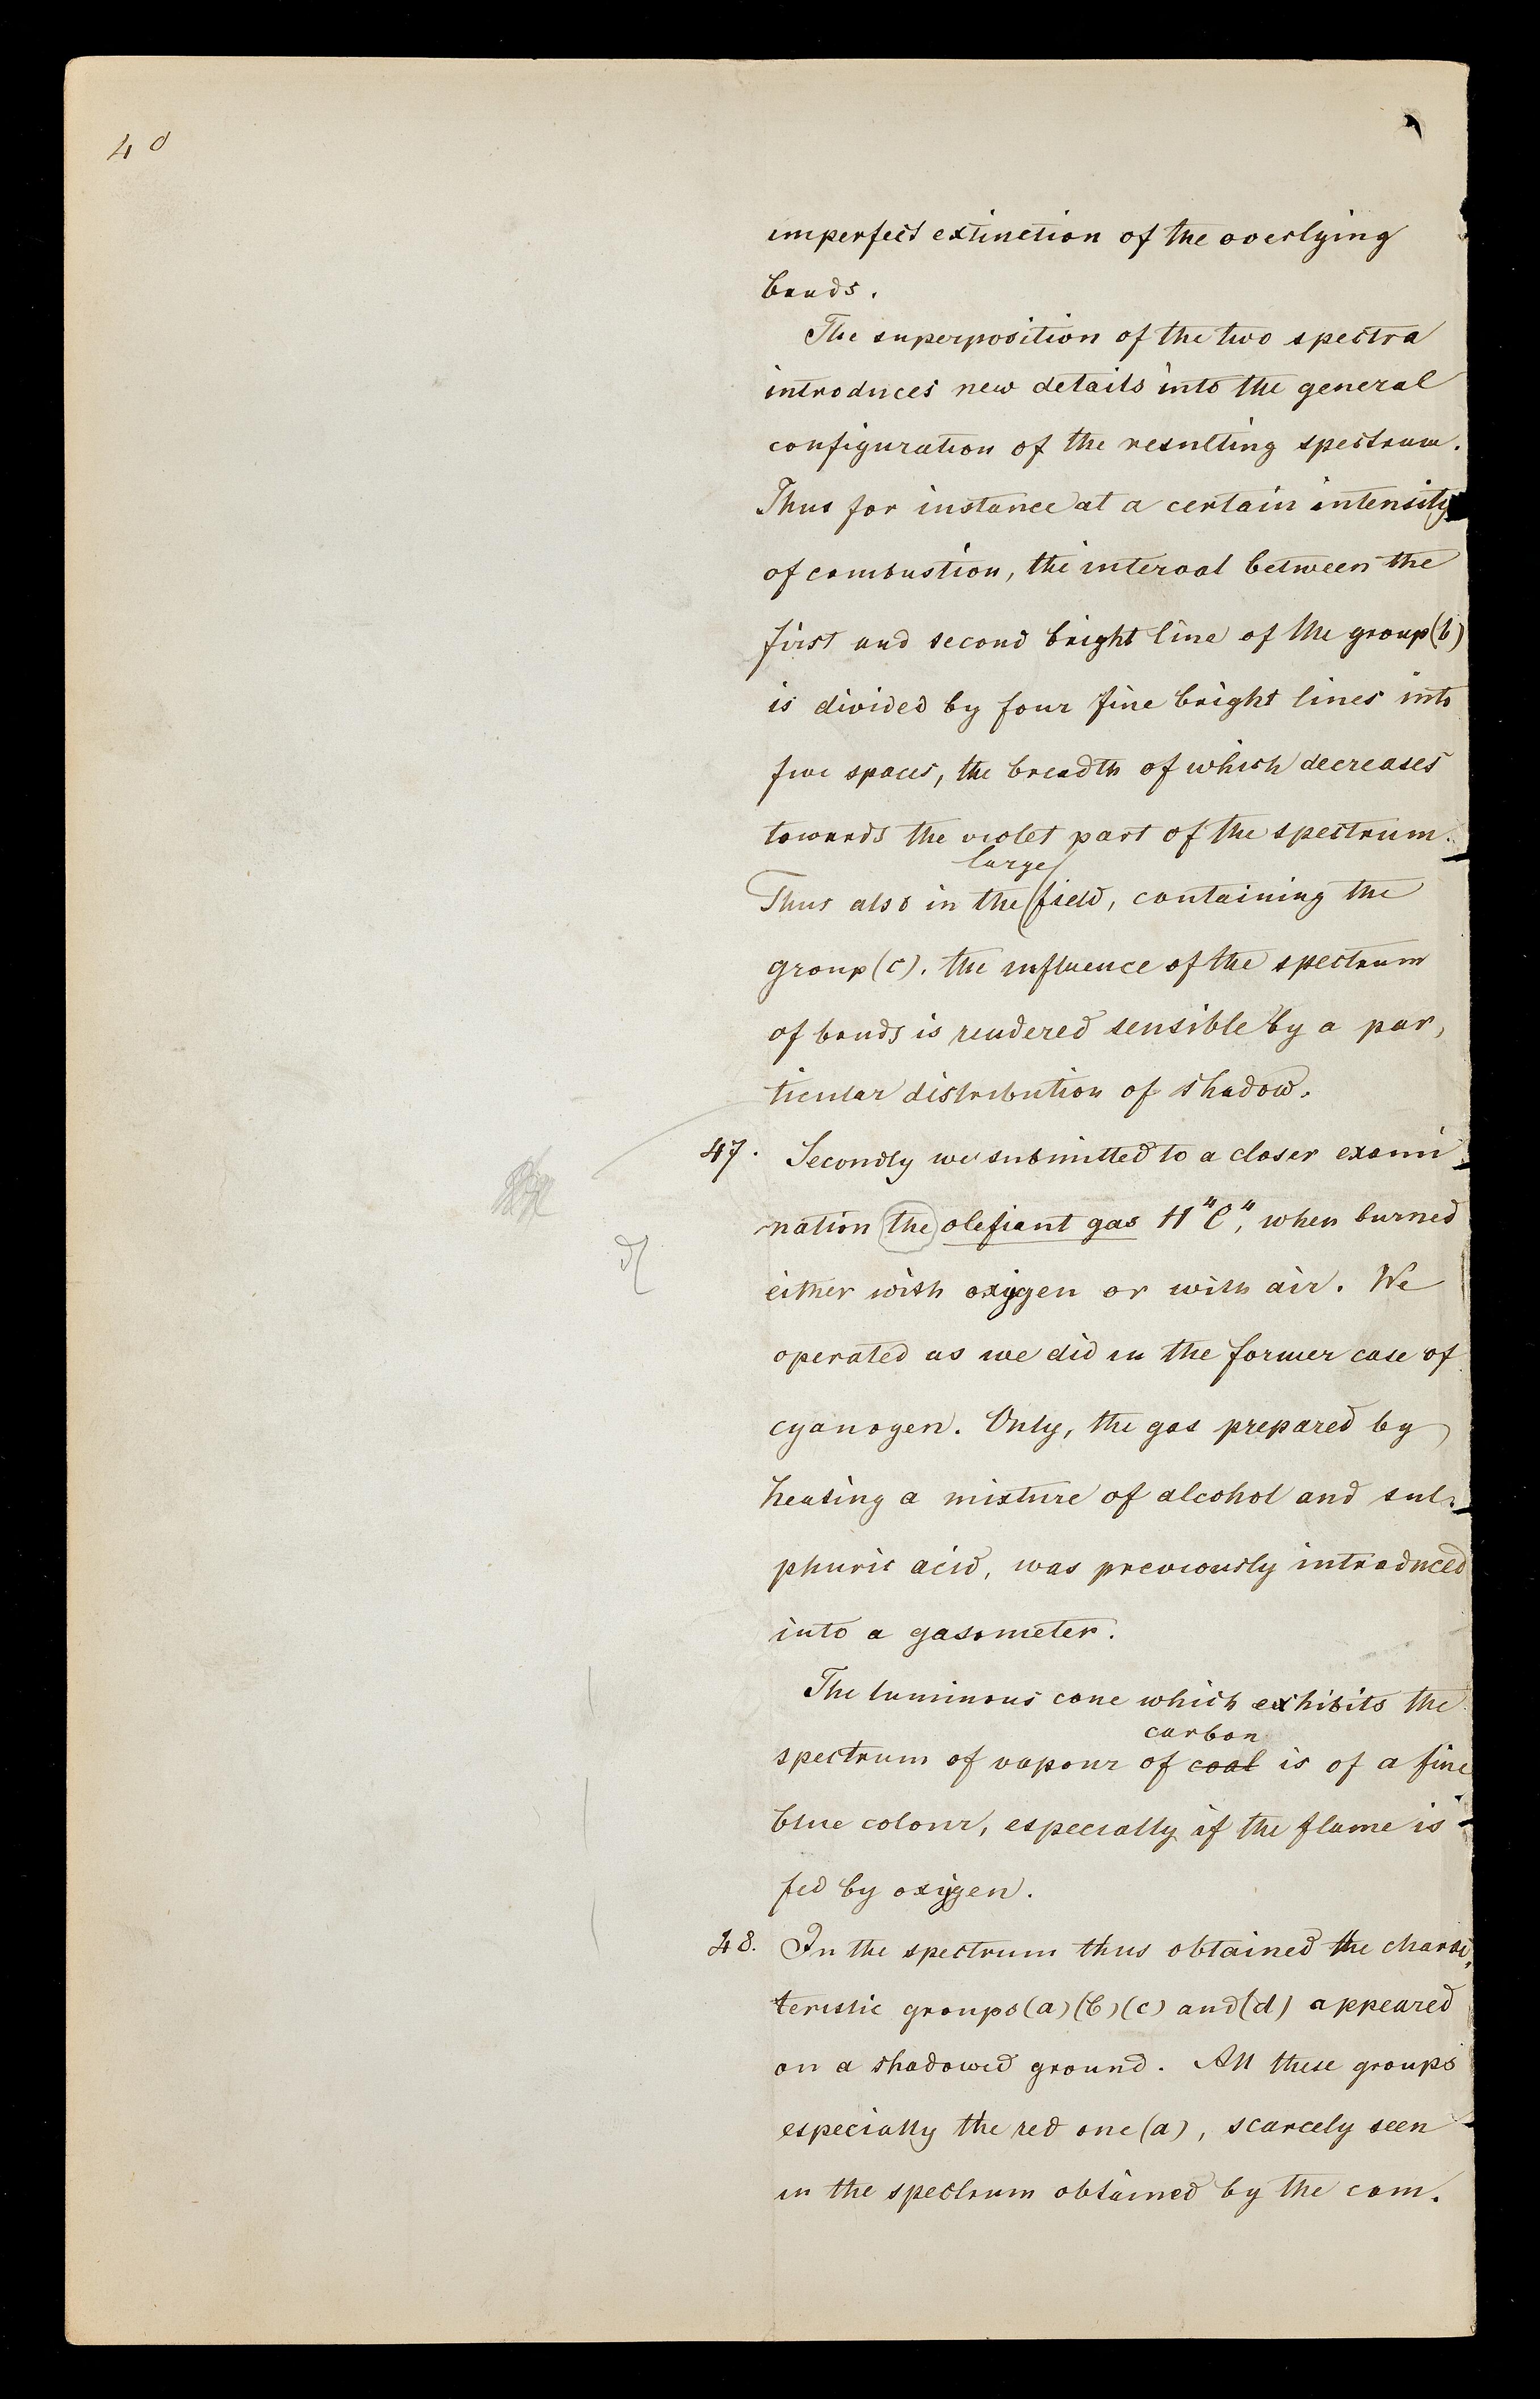 40
imperfect extinction of the overlying
bands.
The superposition of the two spectra
introduces new details into the general
configuration of the resulting spectrum.
Thus for instance at a certain intensity
of combustion, the interval between the
first and second bright line of the group (b)
is divided by four fine bright lines into
five spaces, the breadth of which decreases
towards the violet part of the spectrum.
large
Thus also in the field, containing the
group (c). the influence of the spectrum
of bands is rendered sensible by a par,
ticular distribution of shadow.
47. Secondly we submitted to a closer exami
nation the olefiant gas H"C", when burned
either with oxygen or with air. We
operated as we did in the former case of
cyanogen. Only, the gas prepared by
heating a mixture of alcohol and sul.
phuric acid, was previously introduced
into a gasometer.
The luminous cone which exhibits the
carbon
spectrum of vapour of coal is of a fine
blue colour, especially if the flame is
fed by oxygen.
48. In the spectrum thus obtained the charac,
teristic groups (a) (b) (c) and (d) appeared
on a shadowed ground. All these groups
especially the red one (a), scarcely seen
in the spectrum obtained by the com.